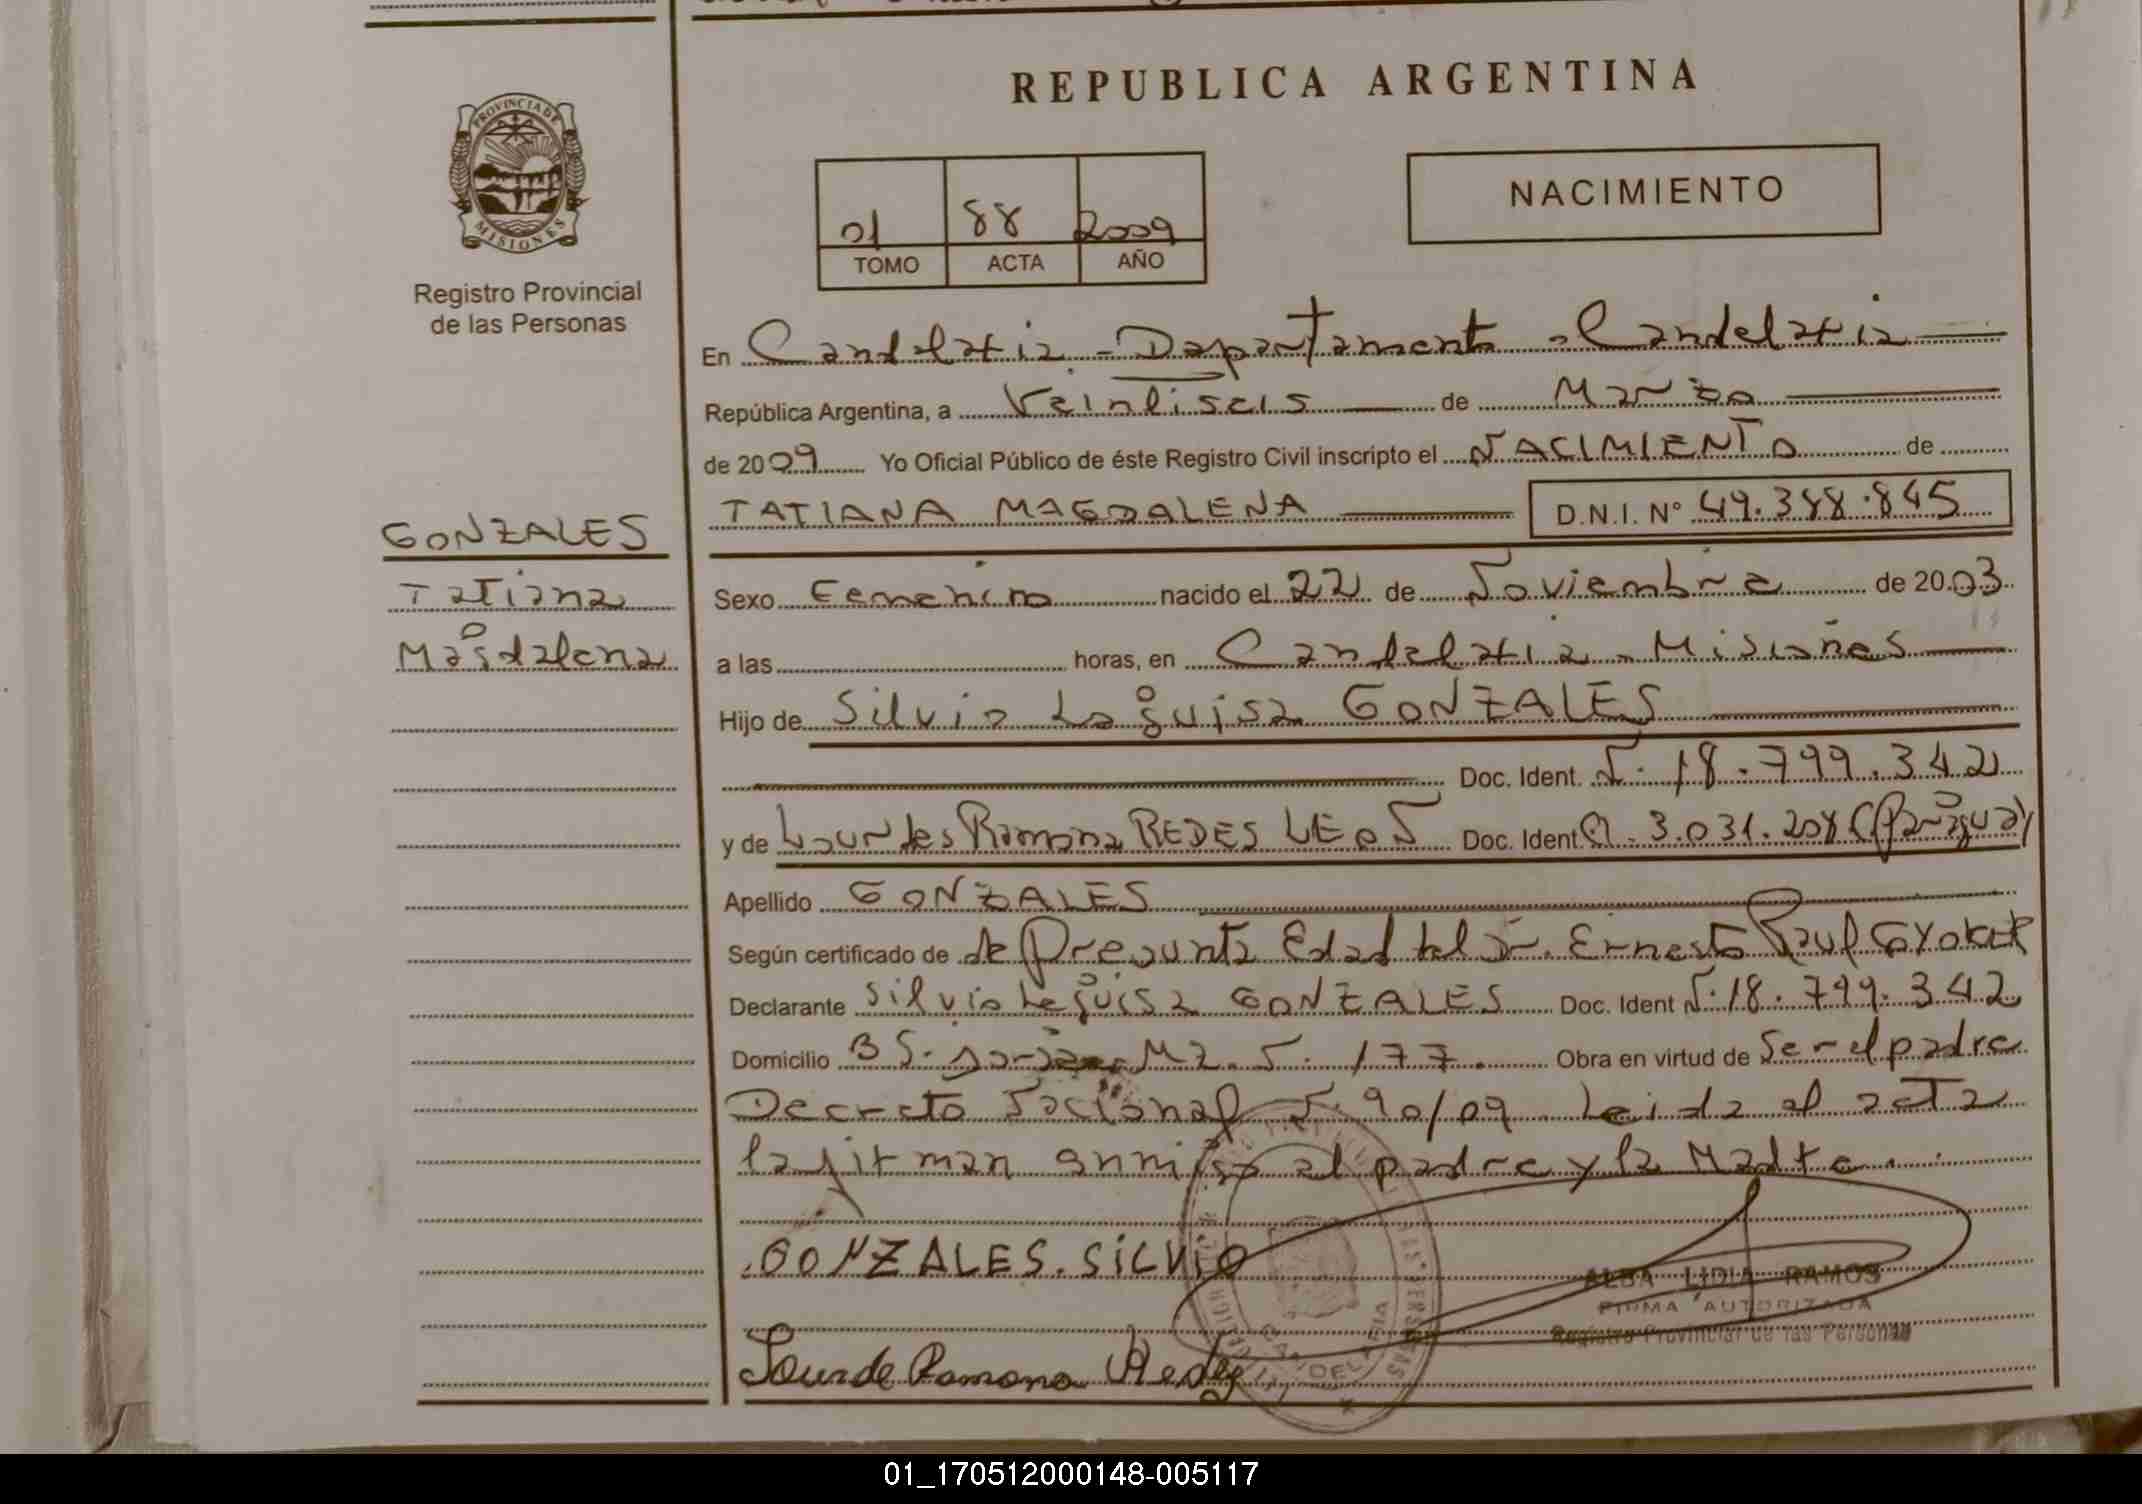 REPUBLICA ARGENTINA
PROVINCIA DE
MISIONES
Registro Provincial
de las Personas
01 88 2009
TOMO ACTA AÑO
NACIMIENTO
En Candelaria - Departamento - Candelaria
República Argentina, a Veintiseis de Marzo
de 2009 Yo Oficial Público de éste Registro Civil inscripto el NACIMIENTO de
TATIANA MAGDALENA D.N.I. N° 49.388.845
GONZALES
Tatiana
Magdalena
Sexo Femenino nacido el 22 de Noviembre de 2003
a las horas, en Candelaria - Misiones
Hijo de Silvio GONZALES
Doc. Ident. N. 18.799.342
y de Lourdes Ramona REDES LEON Doc. Ident. CI. 3.031.208 (Paraguay)
Apellido GONZALES
Según certificado de de Presunta Edad del Dr. Ernesto Raul
Declarante Silvio GONZALES Doc. Ident N. 18.799.342
Domicilio BS. Mz. N. 177. Obra en virtud de Ser el padre
Decreto Nacional N. 90/09. Leida el acta
la firman conmigo el padre y la Madre.
GONZALES. SILVIO
ALBA LIDIA RAMOS
FIRMA AUTORIZADA
Registro Provincial de las Personas
Lourde Ramona Redes
CANDELARIA
01_170512000148-005117